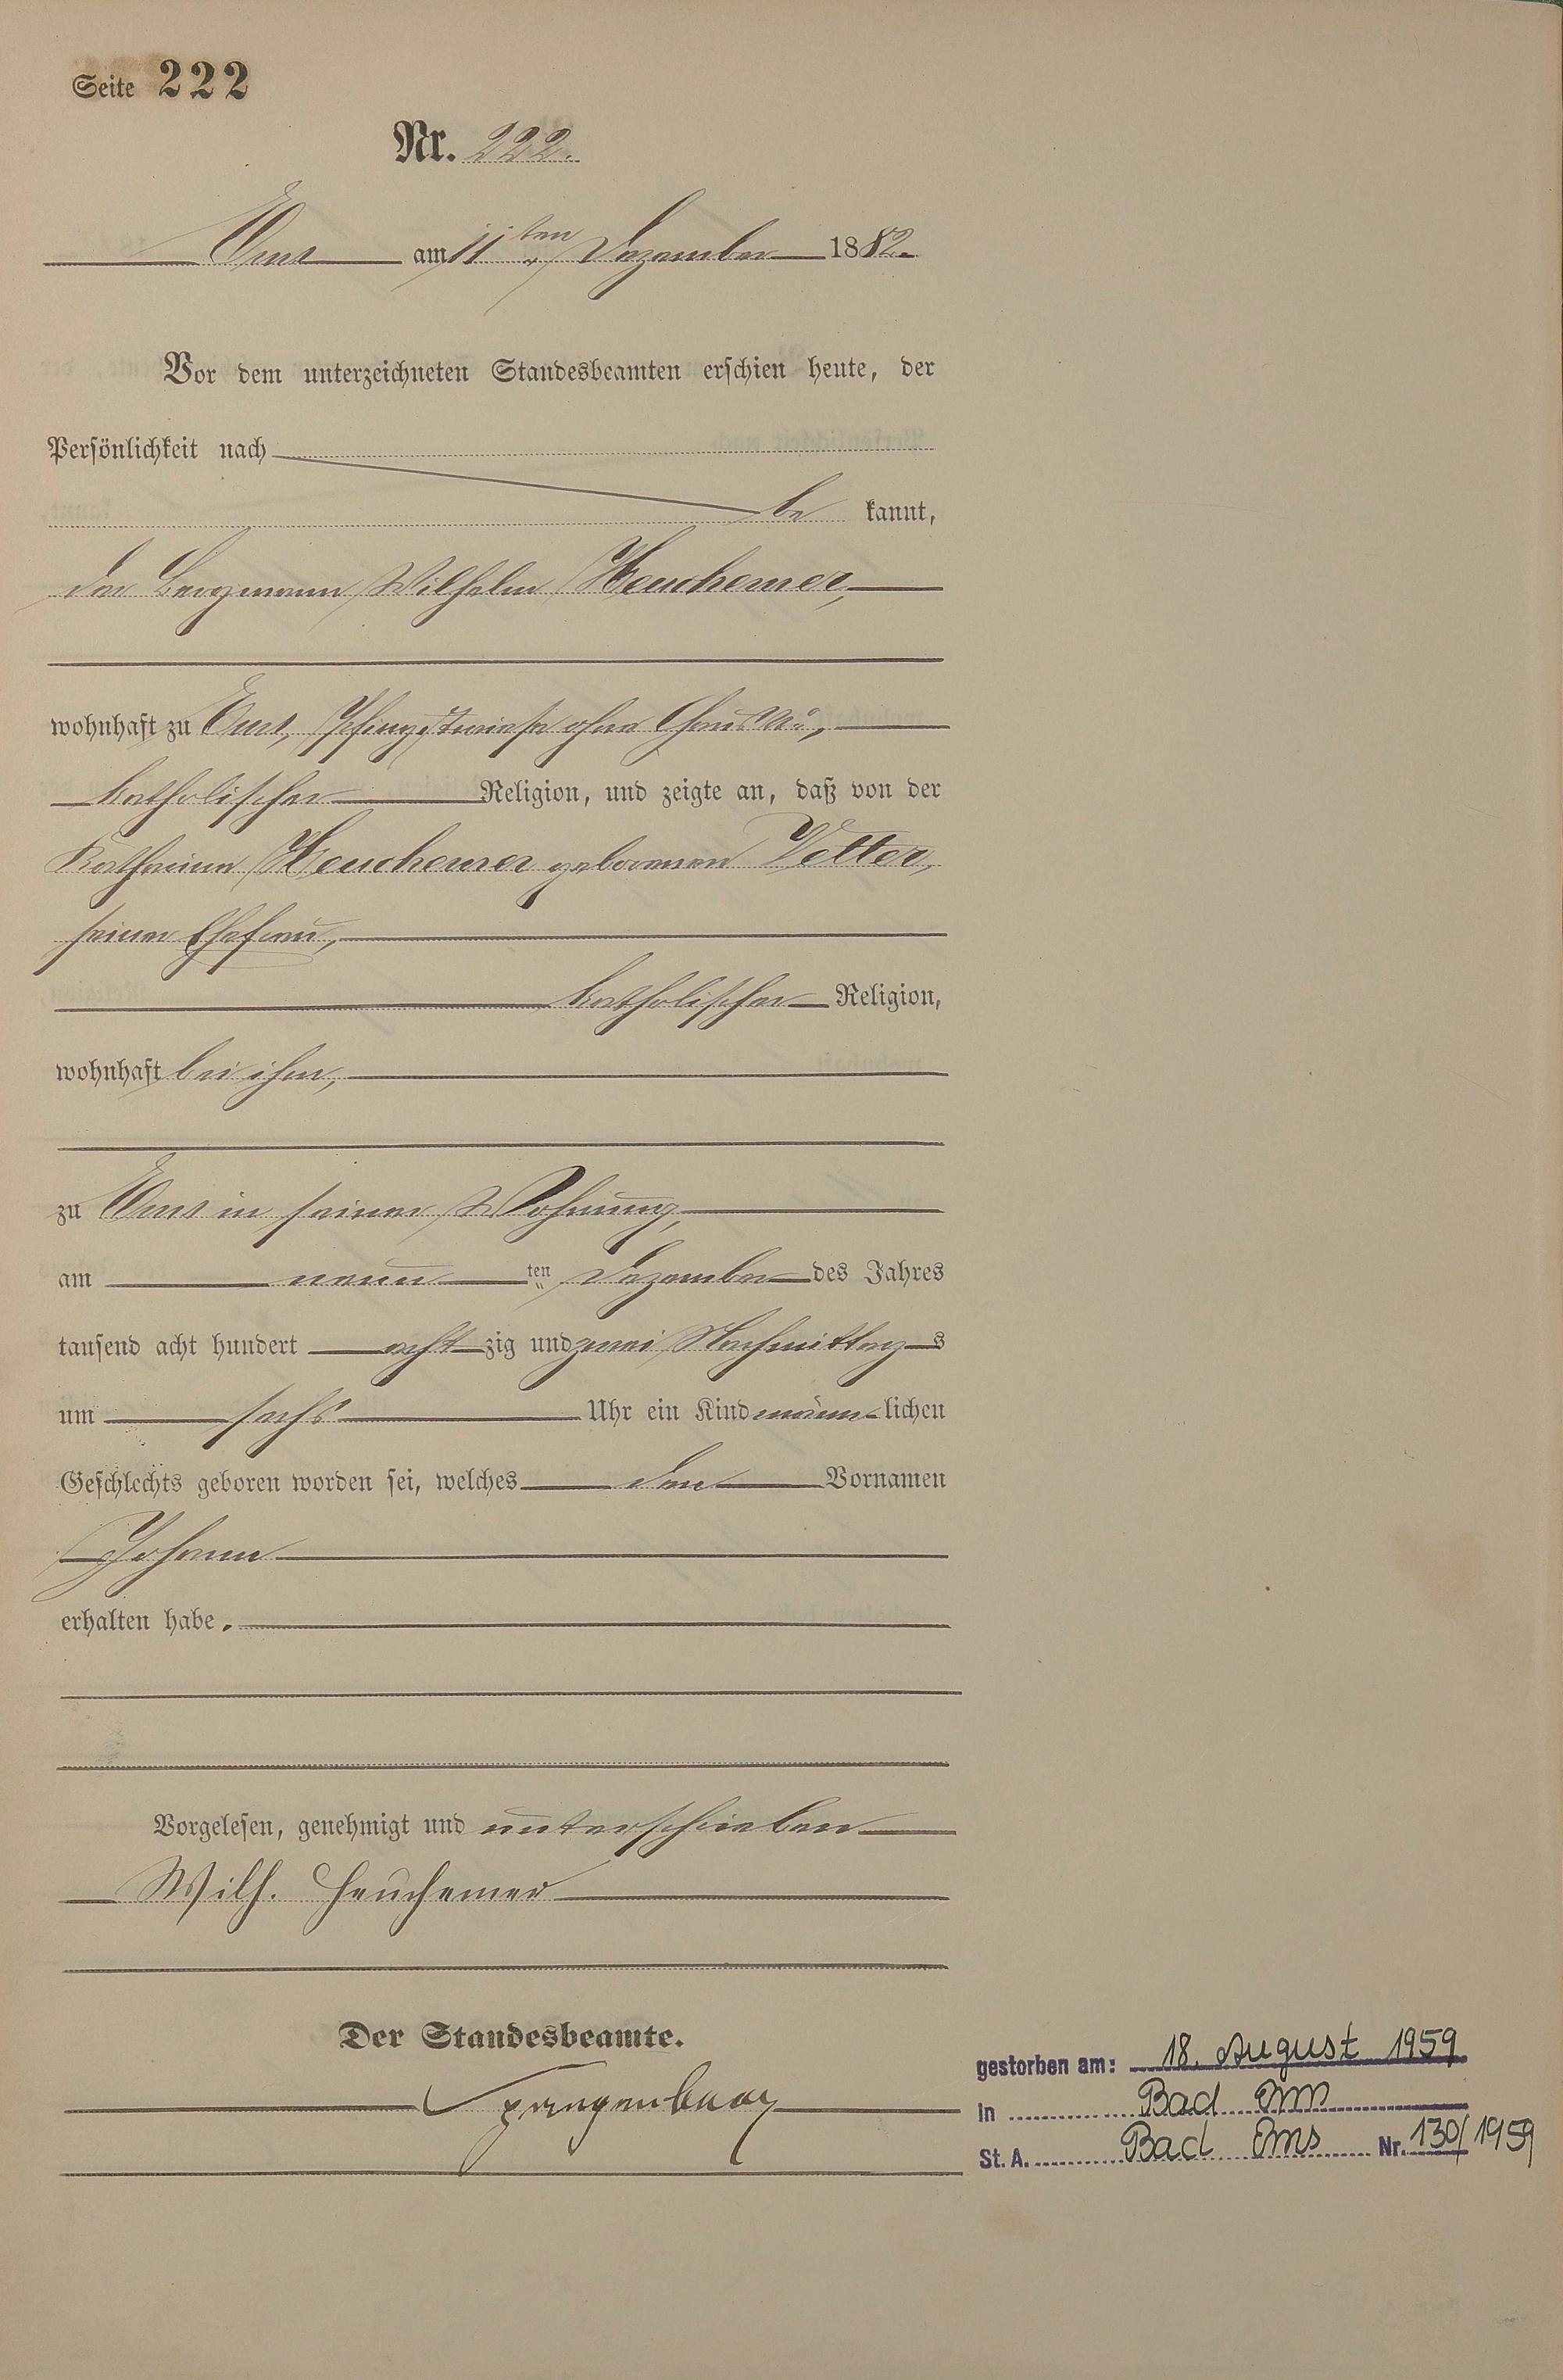 Seite 222
Nr. 222.
Ems am 11ten Dezember 1882.
Vor dem unterzeichneten Standesbeamten erschien heute, der
Persönlichkeit nach
be kannt,
der Bergmann Wilhelm Heuchemer,
wohnhaft zu Ems, Pfingstwiese ohne Haus No,
katholischer Religion, und zeigte an, daß von der
Katharina Heuchemer geborenen Vetter,
seiner Ehefrau,
katholischer Religion,
wohnhaft bei ihm,
zu Ems in seiner Wohnung,
am neunten Dezember des Jahres
tausend acht hundert achtzig und zwei Nachmittags
um sechs Uhr ein Kind männlichen
Geschlechts geboren worden sei, welches den Vornamen
Johann
erhalten habe.
Vorgelesen, genehmigt und unterschrieben
Wilh. Heuchemer
Der Standesbeamte.
gestorben am: 18. August 1959
in Bad Ems
St. A. Bad Ems Nr. 130/1959